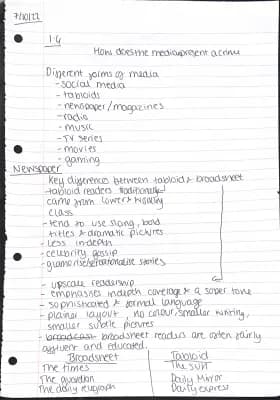 7/10/22
1.4
How does the media present a crime
Different forms of media
- social media
- tabloids
- newspaper/magazines
- radio
- music
- TV series
- movies
- gaming
Newspaper
Key differences between tabloid & broadsheet
- tabloid readers traditionally
came from lower & working
class
- tend to use slang, bold
titles & dramatic pictures
- less indepth
- celebrity gossip
- glamorise/sensationalise stories
- upscale readership
- emphasises indepth coverage & a sober tone
- sophisticated & formal language
- plainer layout, no colour, smaller writing,
smaller subtle pictures
- broadsheet readers are often fairly
affluent and educated.
Broadsheet Tabloid
The times The sun
The guardian Daily Mirror
The daily telegraph Daily express